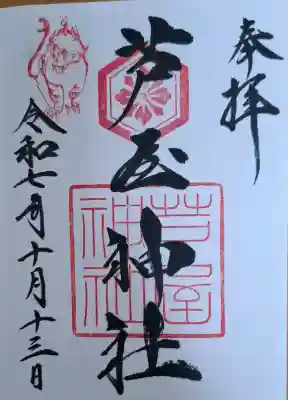 奉拝
芦屋神社
芦屋
神社
令和七年十月十三日